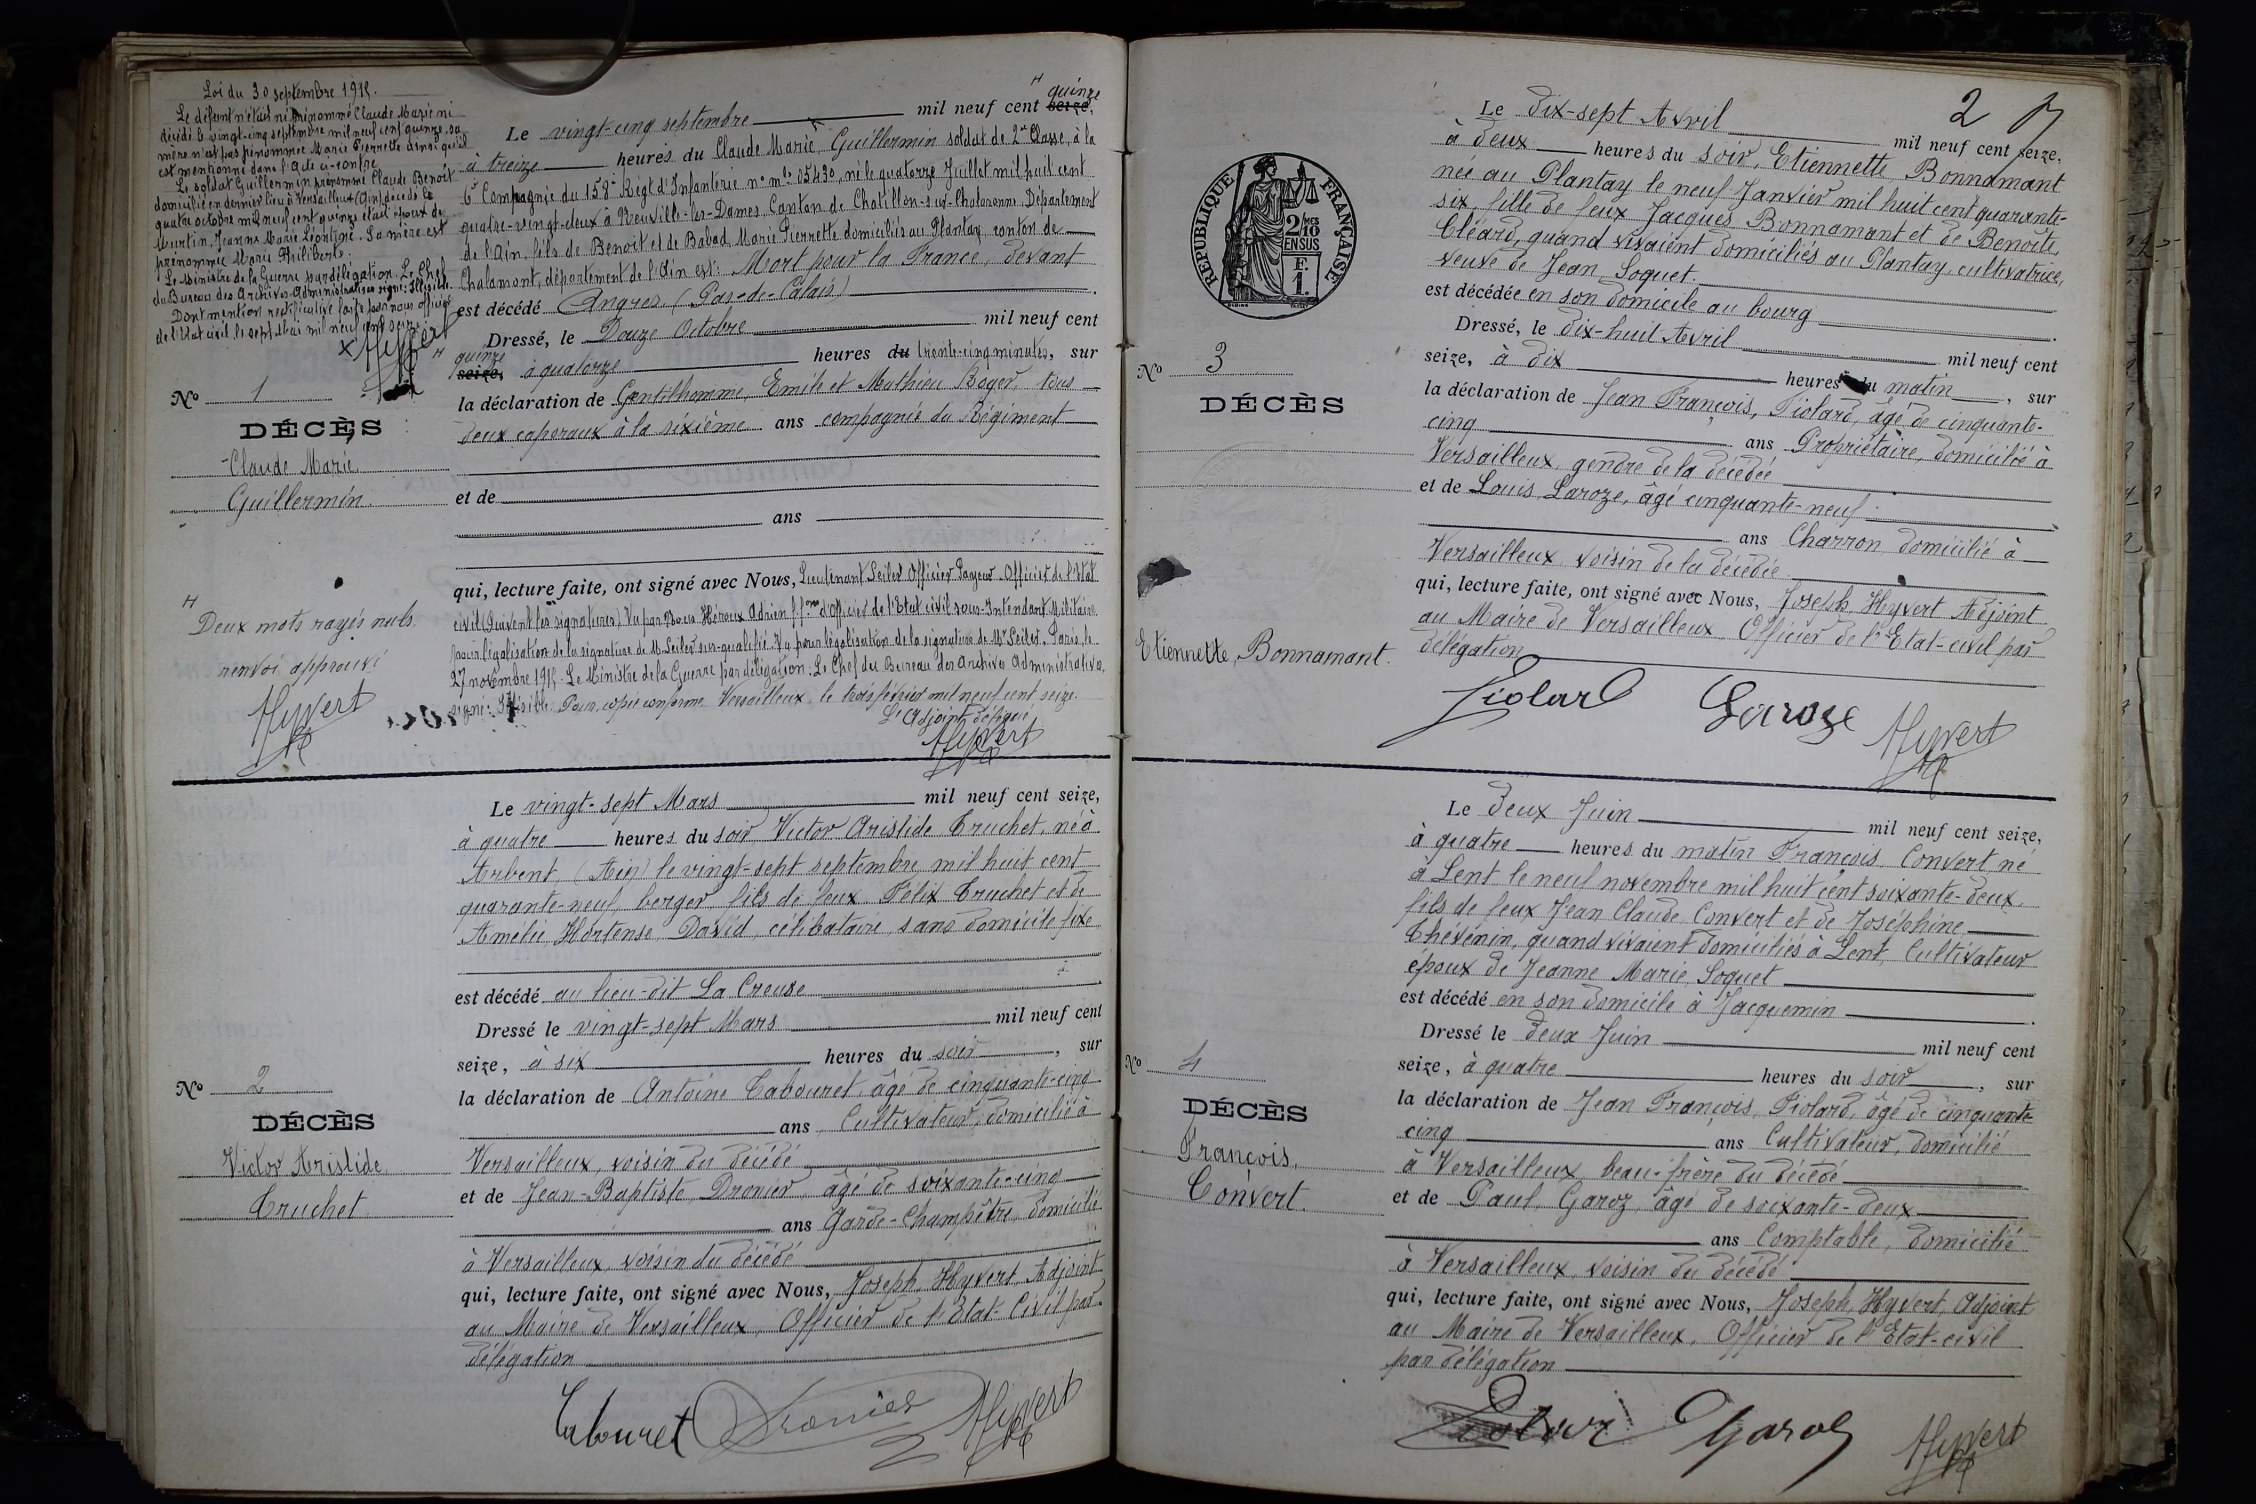 Loi du 30 septembre 1915.
Le défunt n'était ni prénommé Claude Marie ni
décédé le vingt-cinq septembre mil neuf cent quinze, sa
mère n'est pas prénommée Marie Pierrette ainsi qu'il
est mentionné dans l'acte ci-contre
Le soldat Guillermin prénommé Claude Benoît
domicilié en dernier lieu à Versailleux (Ain) décédé le
quatre octobre mil neuf cent quinze était époux de
Jeanne Marie Léontine. Sa mère est
prénommée Marie Philiberte.
Le Ministre de la Guerre par délégation. Le Chef
du Bureau des Archives Administratives signé: Illisible
Dont mention rectificative faite par nous officier
de l'Etat civil le sept Mai mil neuf cent seize
Hyvert
No 1
DÉCÈS
Claude Marie
Guillermin
H
Deux mots rayés nuls.
renvoi approuvé
Hyvert
H quinze
Le vingt-cinq septembre mil neuf cent seize,
à treize heures du Claude Marie, Guillermin soldat de 2e Classe, à la
6e Compagnie du 158e Régt d'Infanterie no mle 05430, né le quatorze Juillet mil huit cent
quatre-vingt-deux à Neuville-les-Dames Canton de Chatillon-sur-Chalaronne Département
de l'Ain, fils de Benoit et de Babad Marie Pierrette domiciliés au Plantay, canton de
Chalamont, département de l'Ain est: Mort pour la France, devant
est décédé Angres (Pas-de-Calais)
Dressé, le Douze Octobre mil neuf cent
H quinze
seize, à quatorze heures du trente-cinq minutes, sur
la déclaration de Gentilhomme, Emile et Mathieu Roger, tous
deux caporaux à la sixième ans compagnie du Régiment
et de
ans
qui, lecture faite, ont signé avec Nous, Lieutenant Seiler Officier Payeur. Officier de l'Etat
civil (Suivent les signatures) Vu par Nous Héroux Adrien f.fons d'Officier de l'Etat civil sous-Intendant Militaire
pour légalisation de la signature de M. Seiler sus-qualifié. Vu pour légalisation de la signature de Mr Seiler. Paris, le
27 novembre 1915. Le Ministre de la Guerre par délégation. Le Chef du Bureau des Archives Administratives.
signé: Illisible. Pour copie conforme Versailleux le trois février mil neuf cent seize.
L'Adjoint délégué
Hyvert
No 2
DÉCÈS
Victor Aristide
Truchet
Le vingt-sept Mars mil neuf cent seize,
à quatre heures du soir Victor Aristide Truchet, né à
Arbent, (Ain) le vingt-sept septembre mil huit cent
quarante-neuf, berger fils de feux Félix Truchet et de
Amélie Hortense David, célibataire, sans domicile fixe
est décédé au lieu-dit La Creuse
Dressé le vingt-sept Mars mil neuf cent
seize, à six heures du soir, sur
la déclaration de Antoine Tabouret, âgé de cinquante-cinq
ans Cultivateur, domicilié à
Versailleux, voisin du décédé
et de Jean-Baptiste Dronier, âgé de soixante-cinq
ans Garde-Champêtre, domicilié
à Versailleux, voisin du décédé
qui, lecture faite, ont signé avec Nous, Joseph Hyvert, Adjoint
au Maire de Versailleux, Officier de l'Etat-Civil par
délégation
Tabouret Dronier Hyvert
2
RÉPUBLIQUE FRANÇAISE
2/10 MES
EN SUS
F.
1.
No 3
DÉCÈS
Etiennette, Bonnamant.
Le dix-sept Avril mil neuf cent seize,
à deux heures du soir, Etiennette, Bonnamant
née au Plantay le neuf Janvier mil huit cent quarante-
six, fille de feux Jacques Bonnamant et de Benoîte,
Cléard, quand vivaient domiciliés au Plantay, cultivatrice,
veuve de Jean Soquet
est décédée en son domicile au bourg
Dressé, le dix-huit Avril mil neuf cent
seize, à dix heures du matin, sur
la déclaration de Jean François, Piolard, âgé de cinquante-
cinq ans Propriétaire, domicilié à
Versailleux, gendre de la décédée
et de Louis Laroze, âgé cinquante-neuf
ans Charron domicilié à
Versailleux voisin de la décédée
qui, lecture faite, ont signé avec Nous, Joseph Hyvert Adjoint
au Maire de Versailleux Officier de l'Etat-civil par
délégation
Piolard Laroze Hyvert
No 4
DÉCÈS
François,
Convert.
Le deux Juin mil neuf cent seize,
à quatre heures du matin François Convert né
à Lent le neuf novembre mil huit cent soixante-deux,
fils de feux Jean Claude Convert et de Joséphine
Thévenin, quand vivaient domiciliés à Lent, Cultivateur
époux de Jeanne Marie Soquet
est décédé en son domicile à Jacquemin
Dressé le deux Juin mil neuf cent
seize, à quatre heures du soir, sur
la déclaration de Jean François, Piolard, âgé de cinquante
cinq ans Cultivateur, domicilié
à Versailleux beau-frère du décédé
et de Paul, Garoz, âgé de soixante-deux
ans Comptable, domicilié
à Versailleux, voisin du décédé
qui, lecture faite, ont signé avec Nous, Joseph, Hyvert, Adjoint
au Maire de Versailleux, Officier de l'Etat-civil
par délégation
Piolard Garoz Hyvert